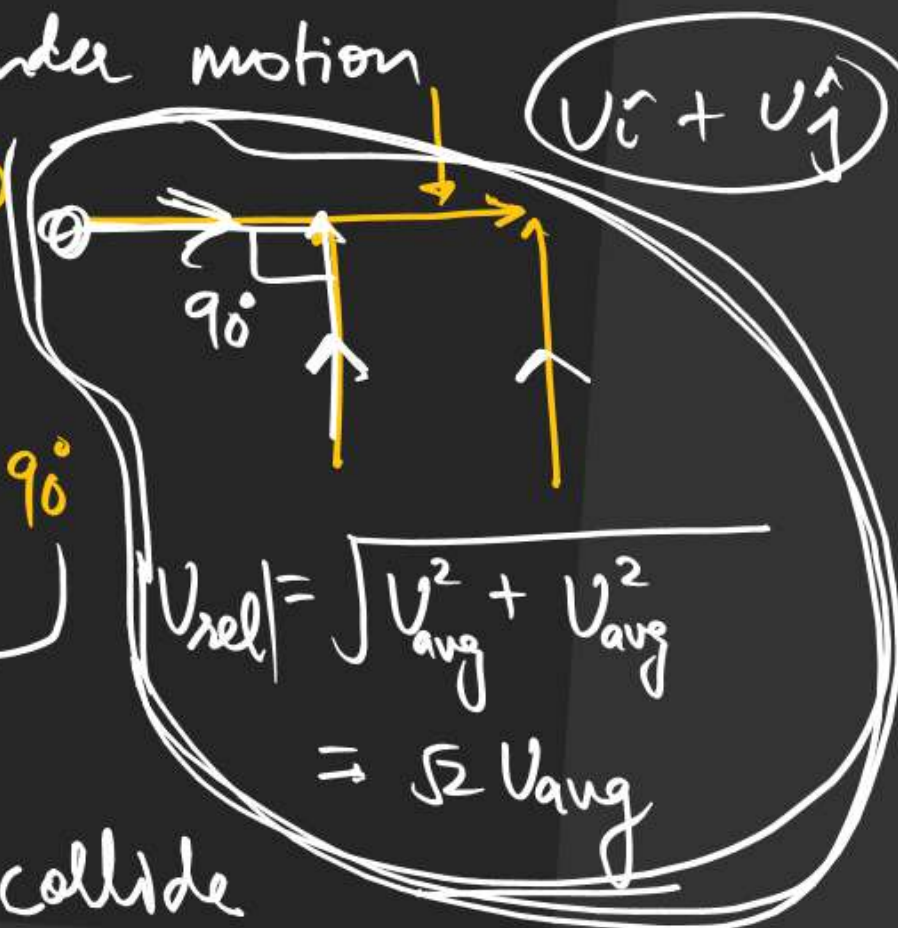 motion
Uî + Uĵ
90°
90°
|U_rel| = √(U²_avg + U²_avg)
= √2 U_avg
collide